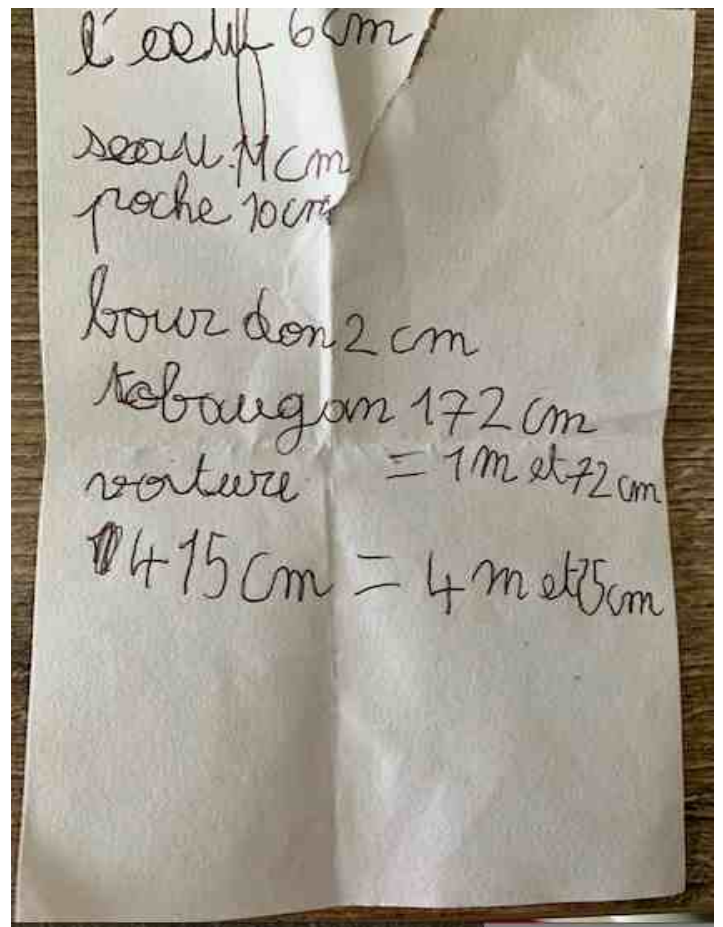 l'oeuf 6cm
seau 11cm
poche 10cm
bourdon 2 cm
tobaugan 172 cm
voiture = 1m et 72 cm
415cm = 4m et 15cm